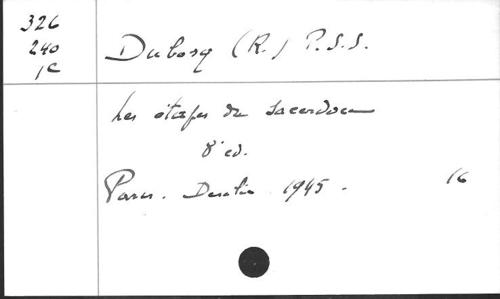 326
240
1C
Dubosq (R.) P.S.S.
Les étapes du sacerdoce
8° ed.
Paris. Desclée 1945. 16